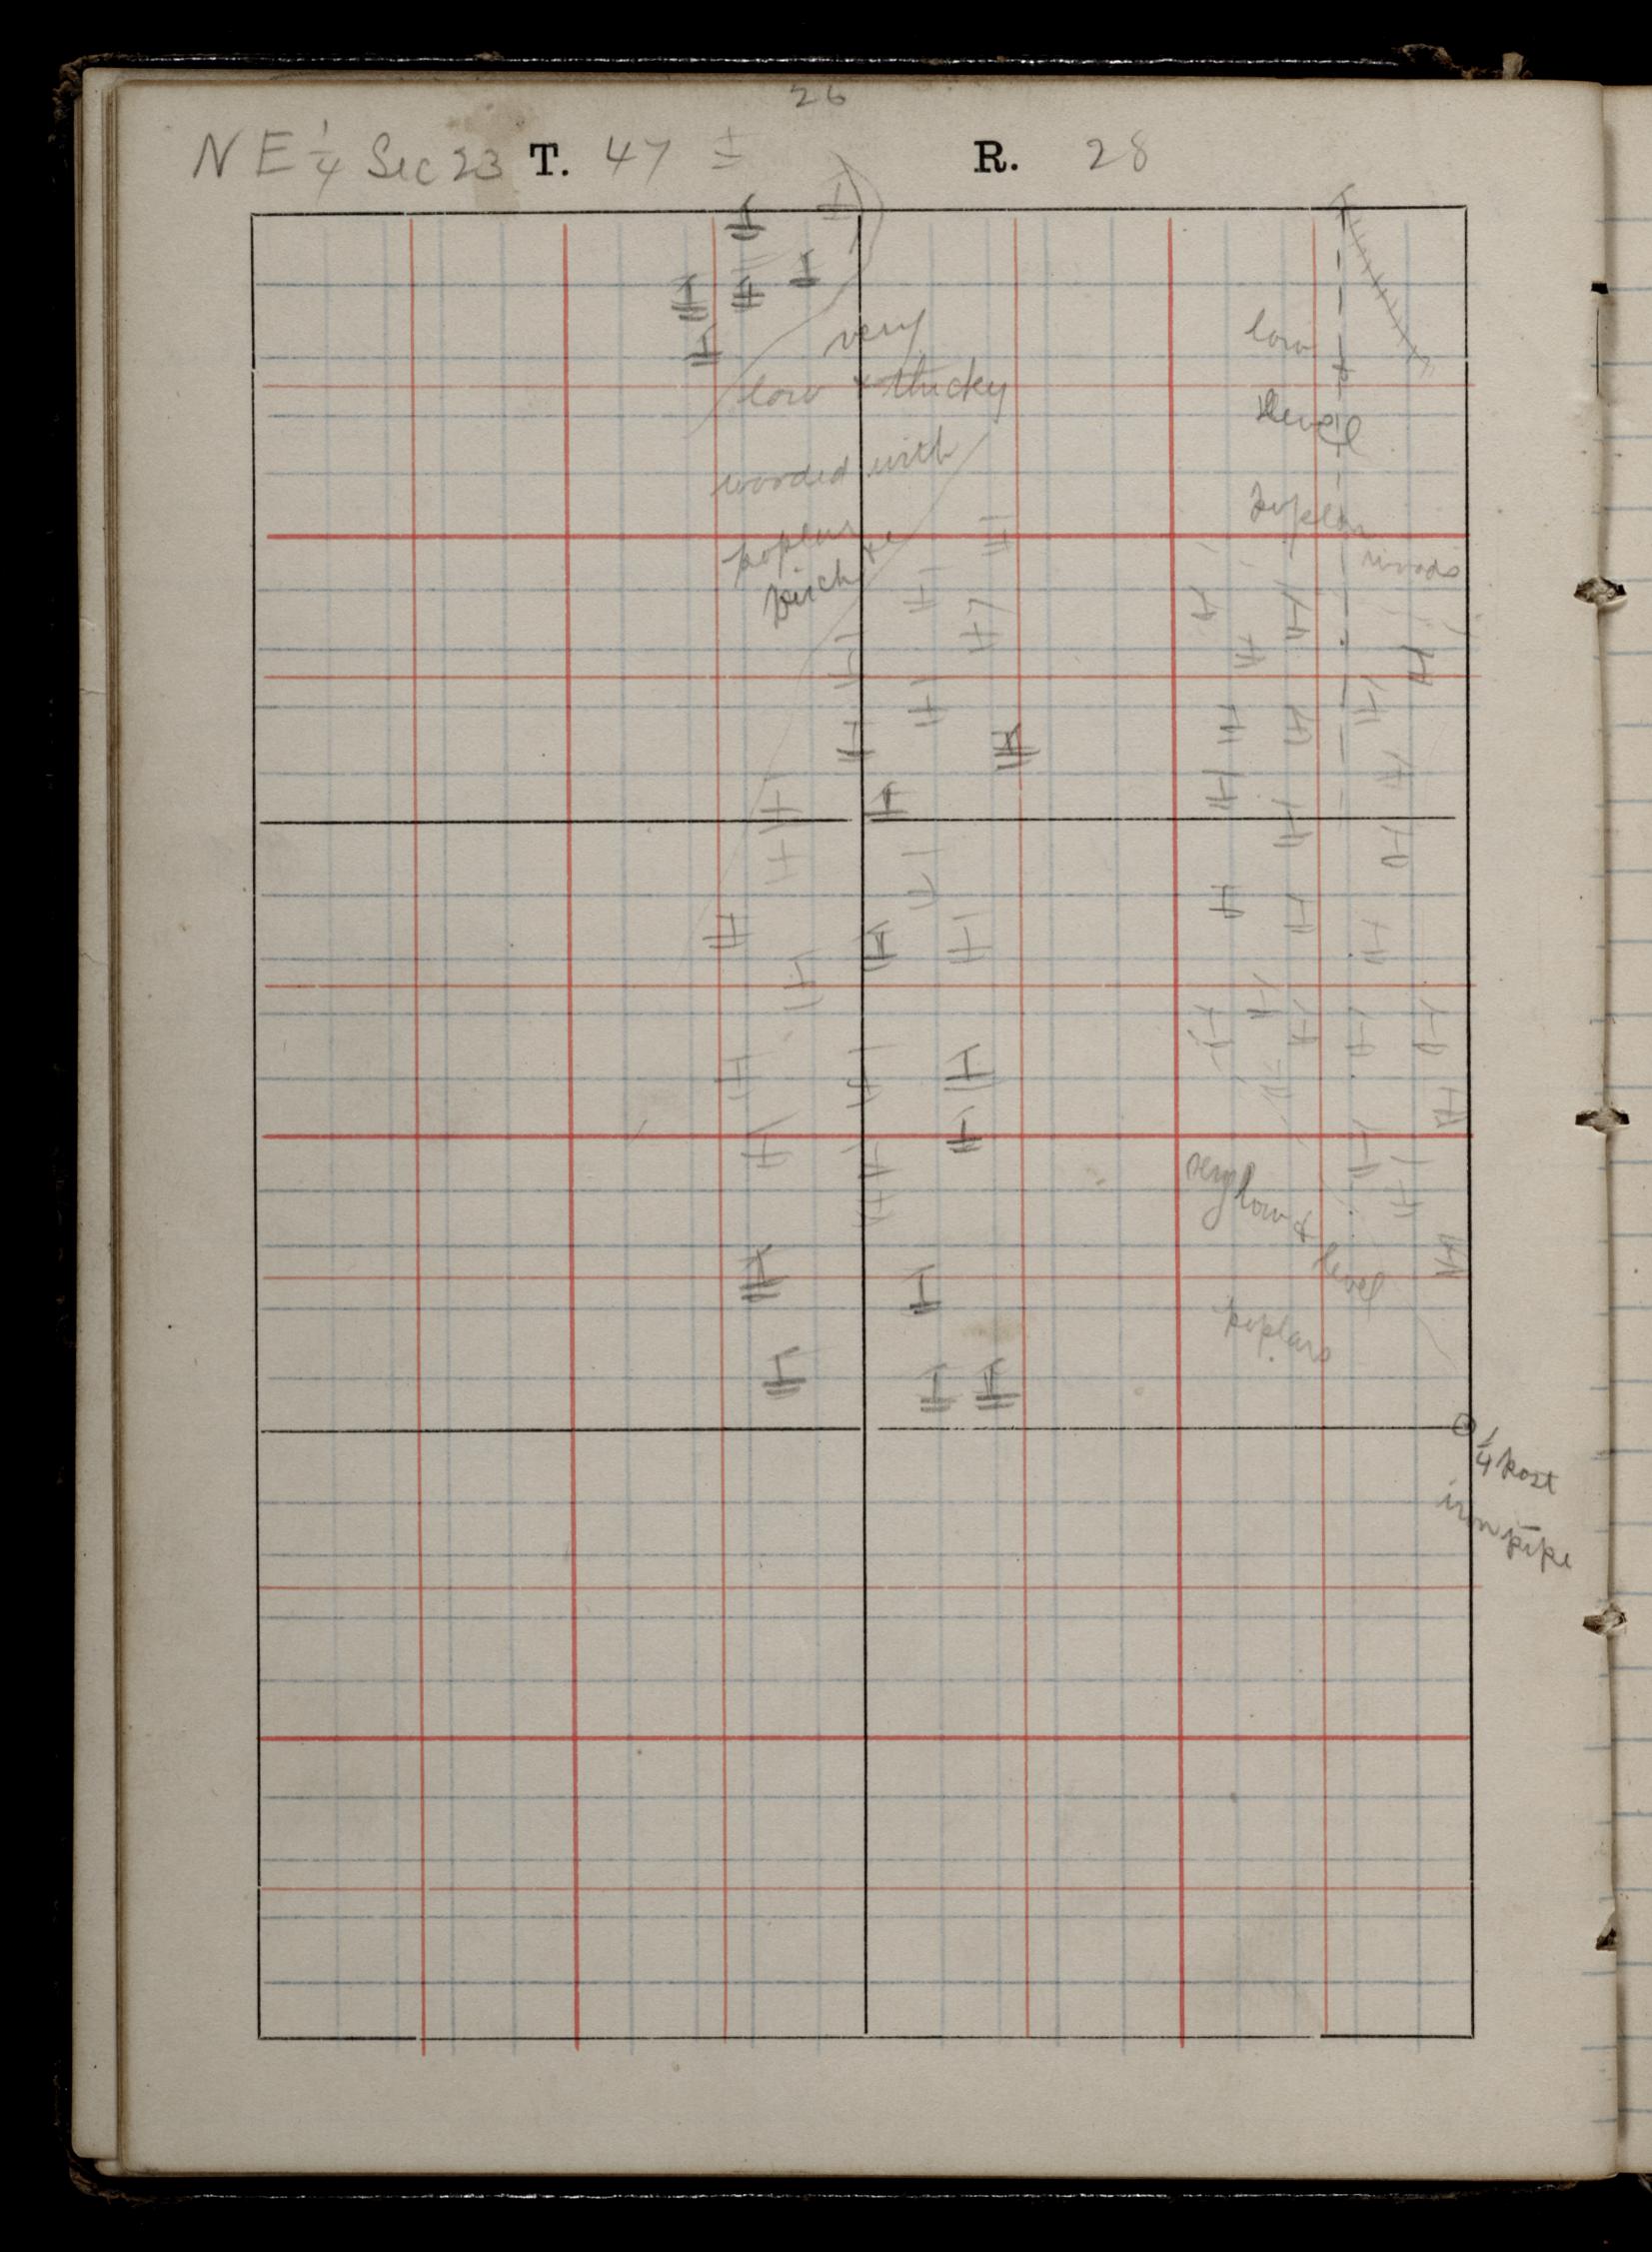 26
NE 1/4 Sec 23 T. 47 R. 28
very
low + thickly
wooded with
poplar
birch +c
low
+
level
poplar
woods
very low +
level
poplars
1/4 post
iron pipe